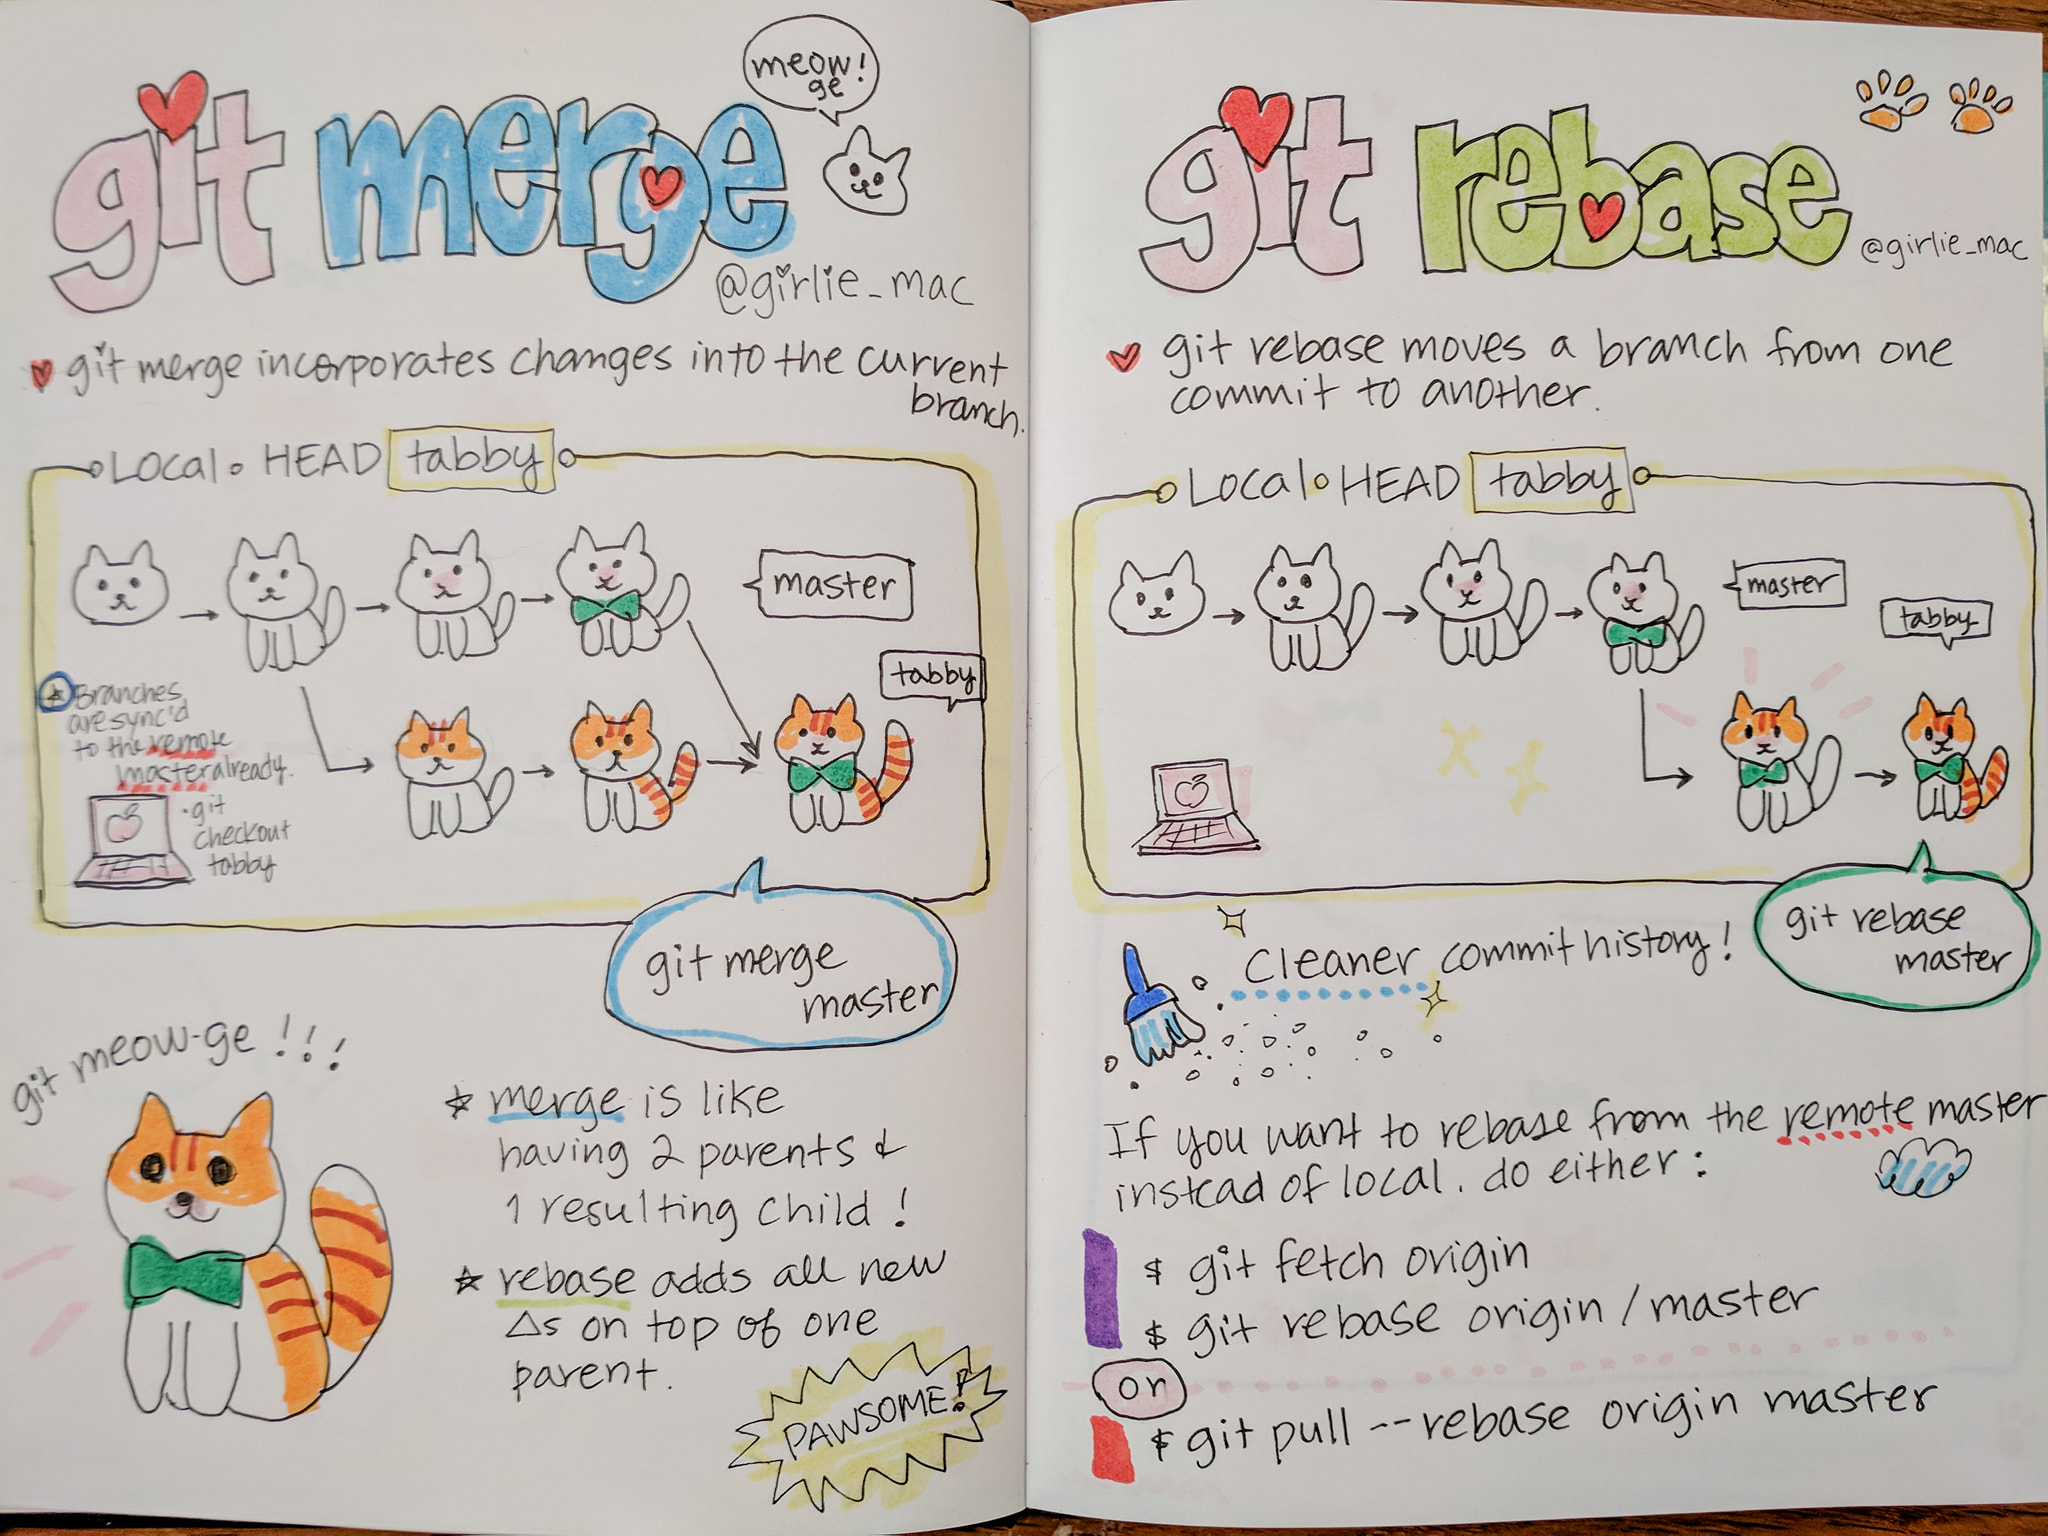 meow!
ge
git merge
@girlie_mac
git merge incorporates changes into the current
branch.
Local HEAD tabby
master
tabby
* Branches
are sync'd
to the remote
master already.
• git
checkout
tabby
git merge
master
git meow-ge!!!
* merge is like
having 2 parents &
1 resulting child!
* rebase adds all new
Δs on top of one
parent.
PAWSOME!
git rebase
@girlie_mac
git rebase moves a branch from one
commit to another.
Local HEAD tabby
master
tabby
git rebase
master
cleaner commit history!
If you want to rebase from the remote master
instead of local. do either:
$ git fetch origin
$ git rebase origin/master
or
$ git pull --rebase origin master